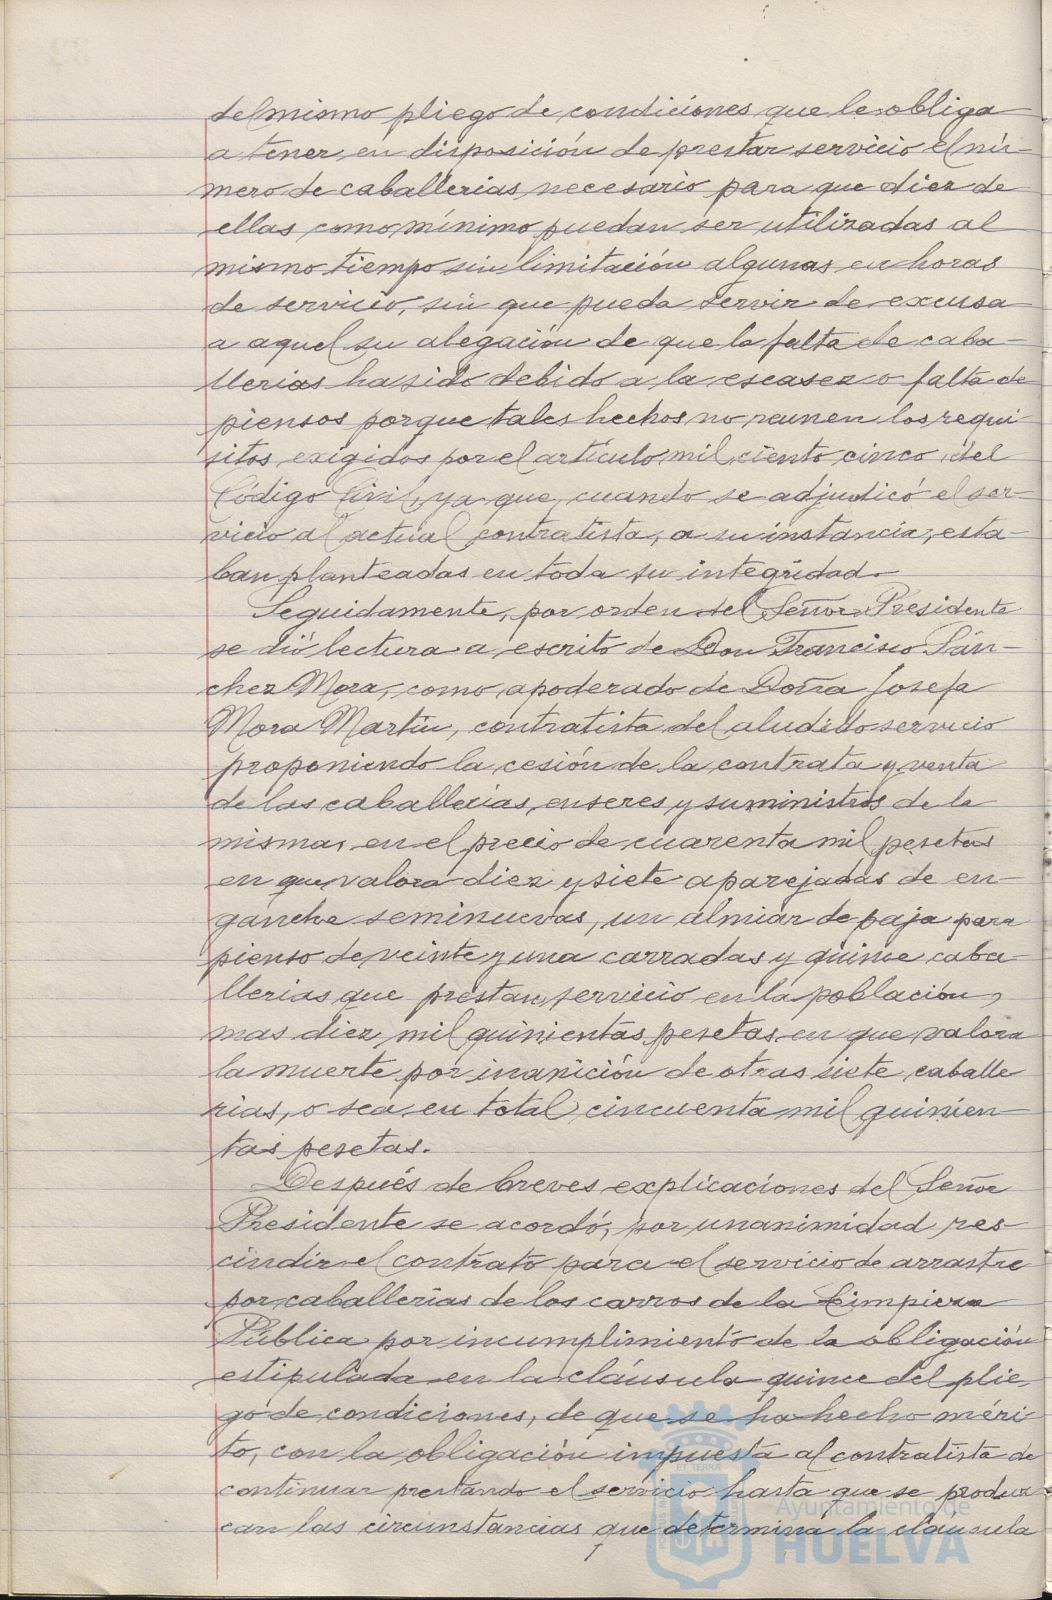 del mismo pliego de condiciones que le obliga
a tener en disposición de prestar servicio el nú-
mero de caballerias necesario para que diez de
ellas como mínimo puedan ser utilizadas al
mismo tiempo sin limitación algunas en horas
de servicio, sin que pueda servir de excusa
a aquel su alegación de que la falta de caba-
llerias ha sido debido a la escasez o falta de
piensos porque tales hechos no reunen los requi-
sitos exigidos por el artículo mil ciento cinco del
Código Civil, ya que, cuando se adjudicó el ser-
vicio al actual contratista, a su instancia, esta-
ban planteadas en toda su integridad.
Seguidamente, por orden del Señor Presidente
se dió lectura a escrito de Don Francisco Sán-
chez Mora, como apoderado de Doña Josefa
Mora Martín, contratista del aludido servicio
proponiendo la cesión de la contrata y venta
de las caballerías, enseres y suministros de la
misma, en el precio de cuarenta mil pesetas
en que valora diez y siete aparejadas de en-
ganche seminuevas, un almiar de paja para
pienso de veinte y una carradas y quince caba-
llerias que prestan servicio en la población,
mas diez mil quinientas pesetas en que valora
la muerte por inanición de otras siete caballe
rias, o sea, en total cincuenta mil quinien-
tas pesetas.
Después de breves explicaciones del Señor
Presidente se acordó, por unanimidad res-
cindir el contrato para el servicio de arrastre
por caballerías de los carros de la Limpieza
Pública por incumplimiento de la obligación
estipulada en la cláusula quince del plie-
go de condiciones, de que se ha hecho méri-
to, con la obligación impuesta al contratista de
continuar prestando el servicio hasta que se produz
can las circunstancias que determina la cláusula
Ayuntamiento de
HUELVA